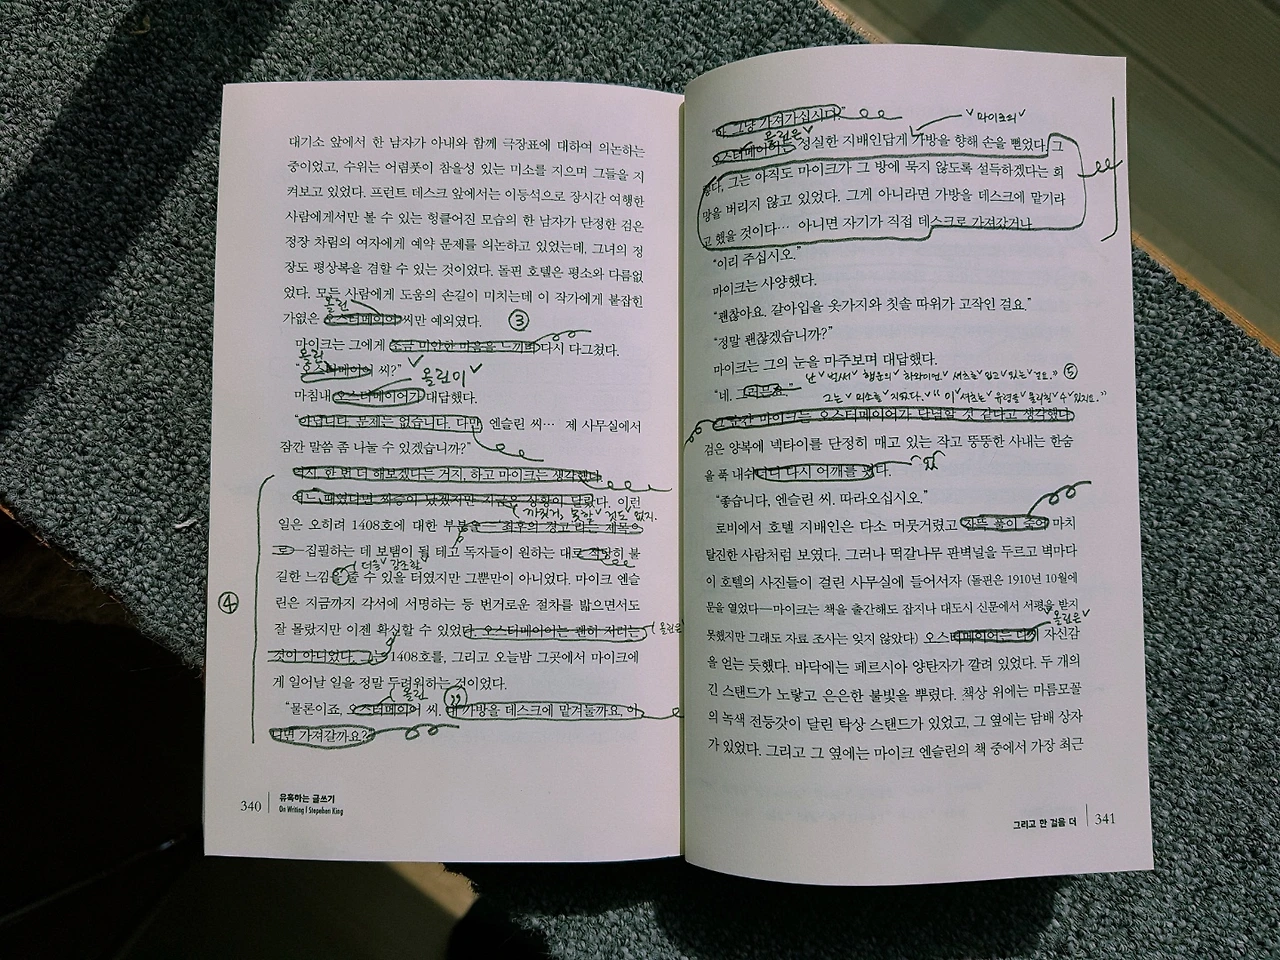 대기소 앞에서 한 남자가 아내와 함께 극장표에 대하여 의논하는
중이었고, 수위는 어렴풋이 참을성 있는 미소를 지으며 그들을 지
켜보고 있었다. 프런트 데스크 앞에서는 이등석으로 장시간 여행한
사람에게서만 볼 수 있는 헝클어진 모습의 한 남자가 단정한 검은
정장 차림의 여자에게 예약 문제를 의논하고 있었는데, 그녀의 정
장도 평상복을 겸할 수 있는 것이었다. 돌핀 호텔은 평소와 다름없
었다. 모든 사람에게 도움의 손길이 미치는데 이 작가에게 붙잡힌
올린
가엾은 오스터메이어 씨만 예외였다.
③
마이크는 그에게 조금 미안한 마음을 느끼며 다시 다그쳤다.
올린
"오스터메이어 씨?"
올린이
마침내 오스터메이어가 대답했다.
"아닙니다. 문제는 없습니다. 다만 엔슬린 씨… 제 사무실에서
잠깐 말씀 좀 나눌 수 있겠습니까?"
역시 한 번 더 해보겠다는 거지, 하고 마이크는 생각했다.
여느 때였다면 짜증이 났겠지만 지금은 상황이 달랐다. 이런
까짓거, 못할 것도 없지.
일은 오히려 1408호에 대한 부분을 — 최후의 경고 라는 제목으
로—집필하는 데 보탬이 될 테고 독자들이 원하는 대로 적당히 불
더욱 강조할
길한 느낌을 줄 수 있을 터였지만 그뿐만이 아니었다. 마이크 엔슬
④
린은 지금까지 각서에 서명하는 등 번거로운 절차를 밟으면서도
잘 몰랐지만 이젠 확신할 수 있었다. 오스터메이어는 괜히 저러는
올린은
것이 아니었다. 그는 1408호를, 그리고 오늘밤 그곳에서 마이크에
게 일어날 일을 정말 두려워하는 것이었다.
올린
"물론이죠, 오스터메이어 씨. 제 가방을 데스크에 맡겨둘까요, 아
니면 가져갈까요?"
340
유혹하는 글쓰기
On Writing / Stephen King
"아, 그냥 가져가십시다."
올린은
마이크의
오스터메이어는 성실한 지배인답게 가방을 향해 손을 뻗었다. 그
렇다, 그는 아직도 마이크가 그 방에 묵지 않도록 설득하겠다는 희
망을 버리지 않고 있었다. 그게 아니라면 가방을 데스크에 맡기라
고 했을 것이다… 아니면 자기가 직접 데스크로 가져갔거나.
"이리 주십시오."
마이크는 사양했다.
"괜찮아요. 갈아입을 옷가지와 칫솔 따위가 고작인 걸요."
"정말 괜찮겠습니까?"
마이크는 그의 눈을 마주보며 대답했다.
난 벌써 행운의 하와이언 셔츠를 입고 있는 걸요." ⑤
"네.
그는 미소를 지었다. "이 셔츠는 유령을 물리칠 수 있지요."
그 순간 마이크는 오스터메이어가 단념할 것 같다고 생각했다.
검은 양복에 넥타이를 단정히 매고 있는 작고 뚱뚱한 사내는 한숨
을 폭 내쉬더니 다시 어깨를 폈다.
"좋습니다, 엔슬린 씨. 따라오십시오."
로비에서 호텔 지배인은 다소 머뭇거렸고 잔뜩 풀이 죽어 마치
탈진한 사람처럼 보였다. 그러나 떡갈나무 판벽널을 두르고 벽마다
이 호텔의 사진들이 걸린 사무실에 들어서자 (돌핀은 1910년 10월에
문을 열었다—마이크는 책을 출간해도 잡지나 대도시 신문에서 서평을 받지
올린은
못했지만 그래도 자료 조사는 잊지 않았다) 오스터메이어는 다시 자신감
을 얻는 듯했다. 바닥에는 페르시아 양탄자가 깔려 있었다. 두 개의
긴 스탠드가 노랗고 은은한 불빛을 뿌렸다. 책상 위에는 마름모꼴
의 녹색 전등갓이 달린 탁상 스탠드가 있었고, 그 옆에는 담배 상자
가 있었다. 그리고 그 옆에는 마이크 엔슬린의 책 중에서 가장 최근
그리고 한 걸음 더
341